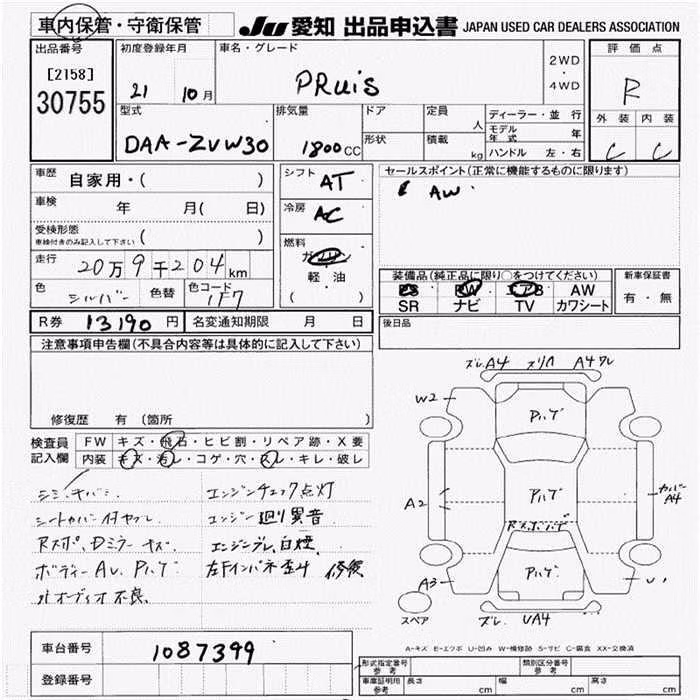 車内保管・守衛保管
JU 愛知 出品申込書 JAPAN USED CAR DEALERS ASSOCIATION
出品番号
[2158]
30755
初度登録年月
21 10月
車名・グレード
PRuiS
2WD
・
4WD
評価点
R
外装 内装
C C
型式
DAA-ZVW30
排気量
1800CC
ドア
形状
定員
人
積載
kg
ディーラー・並行
モデル年式 年
ハンドル 左・右
車歴 自家用・( )
車検 年 月( 日)
受検形態
車検付きのみ記入して下さい ( )
走行 20万9千204km
色 シルバー 色替 色コード 1F7
シフト AT
冷房 AC
燃料
ガソリン
軽・油
( )
セールスポイント(正常に機能するものに限ります)
AW
装備品(純正品に限り○をつけてください)
PS PW エアB AW
SR ナビ TV カワシート
新車保証書
有・無
R券 13190円 名変通知期限 月 日
後日品
注意事項申告欄(不具合内容等は具体的に記入して下さい)
修復歴 有(箇所 )
検査員
記入欄
FW キズ・飛石・ヒビ割・リペア跡・X要
内装 キズ・汚レ・コゲ・穴・スレ・キレ・破レ
シートカバー付ヤブレ
Rスポ、Dミラーキズ
ボディーAU、Pハゲ
オーディオ不良
エンジンチェック点灯
エンジン廻り異音
エンジンブレ、白煙
左Fインパネ歪み 修復
ズレA4 スリハ A4ワレ
W2
Pハゲ
A2
Pハゲ
カバーA4
Rスポ
Pハゲ
A3
ズレ UA4
スペア
A-キズ E-エクボ U-凹み W-補修跡 S-サビ C-腐食 XX-交換済
車台番号 1087399
登録番号
形式指定番号 参考
類別区分番号 参考
車庫証明用 参考 長さ cm 幅 cm 高さ cm